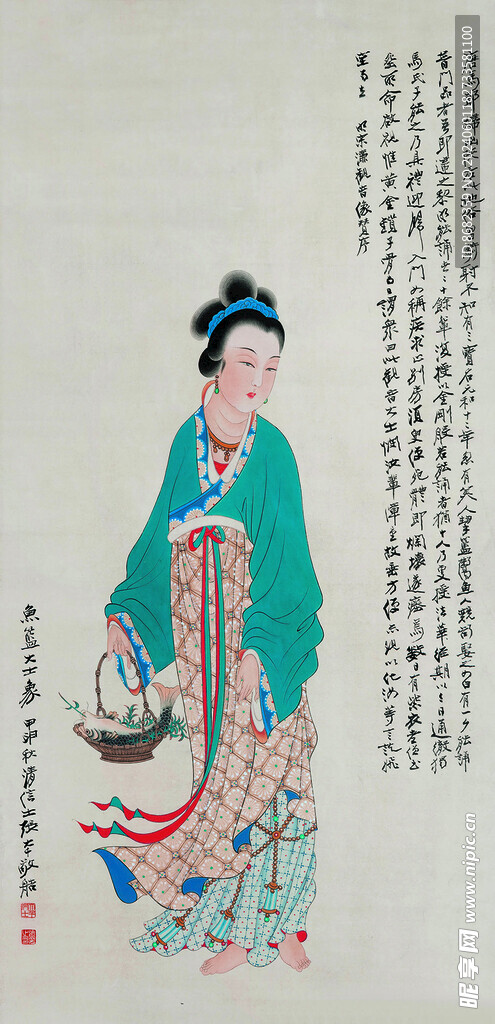 馬郎婦出
射不知有三寶 元和十二年忽有美人挈籃鬻魚人競尚娶之曰有一夕能誦
普門品者吾即遣之黎明能誦者二十餘輩復授以金剛般若能誦者猶十人乃更授法華經期以三日通徹獨
馬氏子能之乃具禮迎歸入門如稱疾求止別房須臾便死體即爛壞遂瘞焉數日有紫衣老僧至
葬所命啟視惟黃金鎖子骨 曰謂眾曰此觀音大士憫汝輩障重故垂方便示現以化汝等言訖飛
空而去 明宋濂觀音像贊序
魚籃大士象 甲申秋清信士張大千敬
昵享网 www.nipic.cn
ID:8682379 NO:20240601182733581100